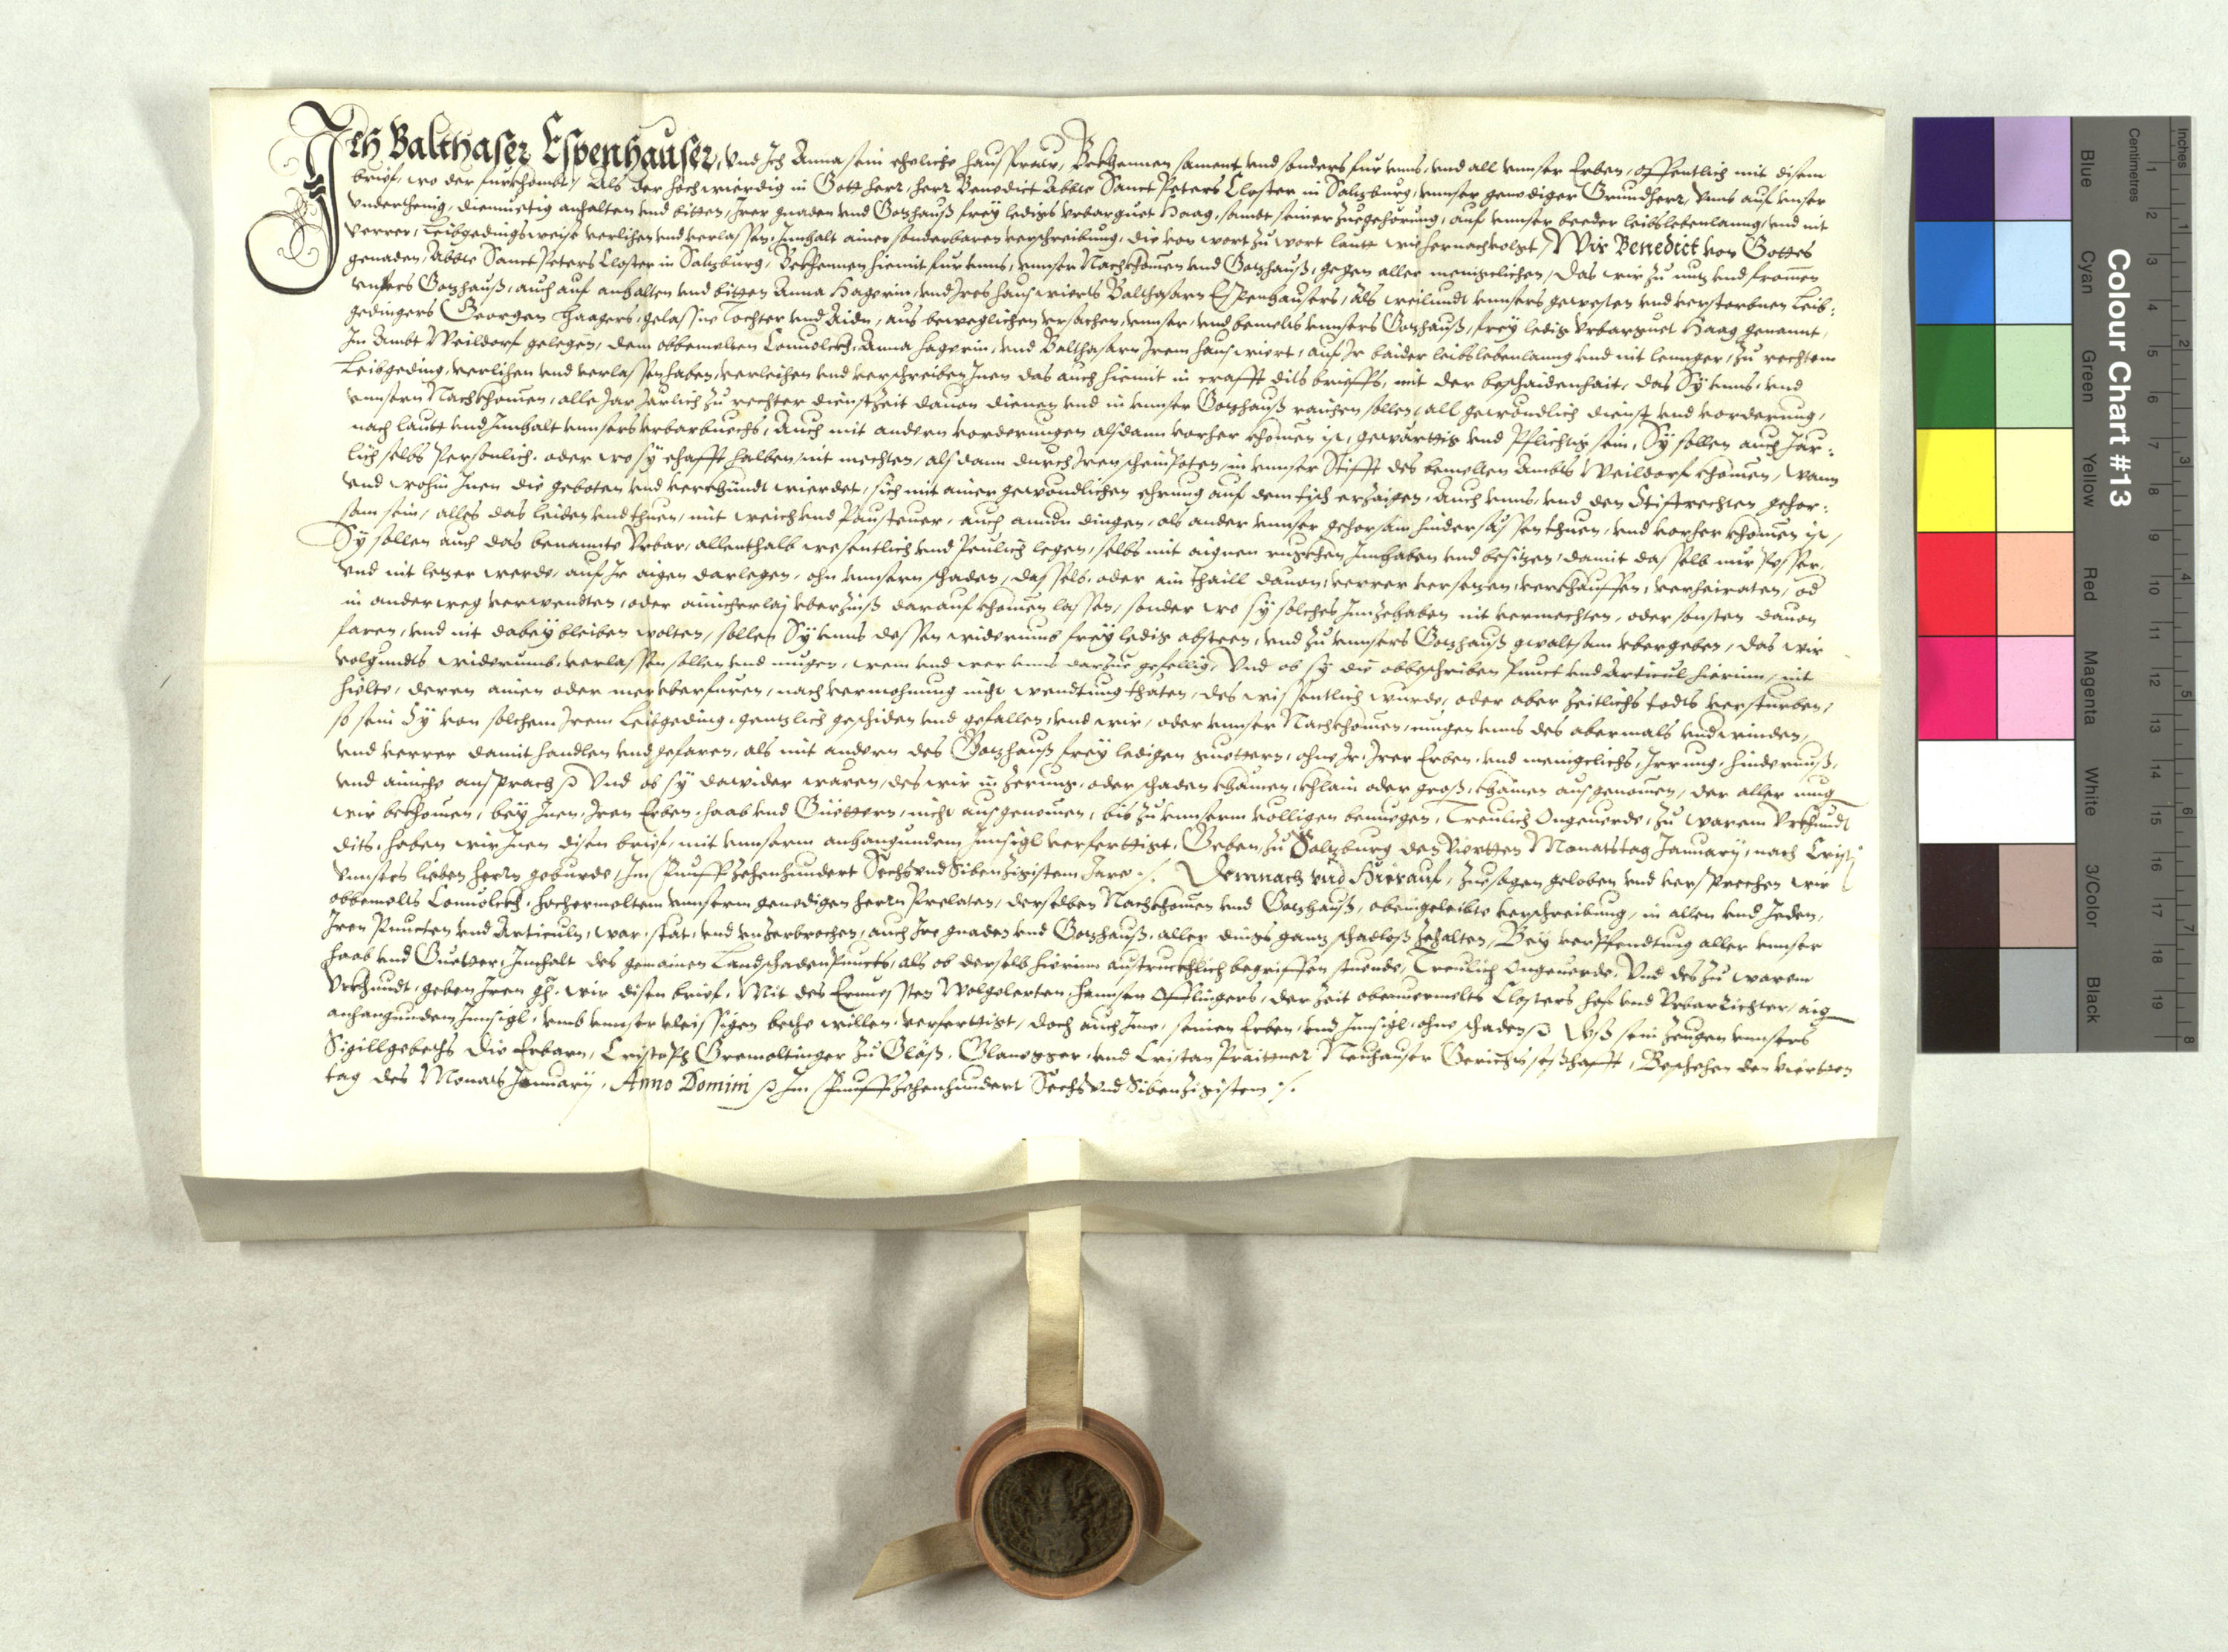 Ich Balthaser Espenhauser, vnd Ich Anna sein eheliche hausfraw, Bekhennen sament vnd sonders fur vnns, vnd all vnnser Erben, offentlich mit disem
brief, wo der furkhombt, Als der hochwierdig in Gott herr, herr Benedict Abbte Sanct Peters Closter in Salzburg, vnnser genediger Grundherr, vnns auf vnser
vnderthenig, diemuetig anhalten vnd bitten, Irer gnaden vnd Gotzhauß frey ledigs vrbarguet Haag, sambt seiner zuegehorung, auf vnnser beeder leibslebenlanng, vnd nit
verrer, Leibgedingsweise verlihen vnd verlassen, Innhalt ainer sonderbaren verschreibung, die von wort zu wort laut wie hernachvolgt, Wir Benedict von Gottes
genaden, Abbte Sanct Peters Closter in Salzburg, Bekhennen hiemit fur vnns, vnnser Nachkhomen vnd Gotzhauß, gegen aller menigelichen, das wir zu nutz vnd fromen
vnsers Gotzhauß, auch auf anhalten vnd bitten Anna Hagerin, vnd Ires hauswierts Balthasarn Espenhausers, als weilundt vnnsers gewesten vnd verstorbnen Leib:
gedingers Georgen Haagers, gelassne Tochter vnd Aidn, aus beweglichen vrsachen, vnnser, vnd bemelts vnnsers Gotzhauß, frey ledig vrbarguet Haag genannt,
Im Ambt Weildorf gelegen, dem obbemelten Conuolckh, Anna Hagerin, vnd Balthasarn Irem hauswiert, auf Ir baider leibslebenlanng vnd nit lennger, zu rechtem
Leibgeding, verlihen vnd verlassen haben, verleihen vnd verschreiben Inen das auch hiemit in crafft dits briefs, mit der beschaidenhait, das Sy vnns, vnd
vnnsern Nachkhomen, alle Jar Järlich zu rechter dienstzeit dauon dienen vnd in vnnser Gotzhauß raichen sollen, all gewöndlich dienst vnd vorderung,
nach laut vnd Innhalt vnnsers vrbarbuechs, Auch mit andern vorderungen alsdann vorher khomen ist, gewärttig vnd Pflichtig sein, Sy sollen auch Jär:
lich selbs Persönlich, oder wo sy ehafft halben nit mechten, alsdann durch Iren schein Poten, in vnnser Stifft des bemelten Ambts Weildorf khomen, wann
vnd wohin Inen die geboten vnd verkhundt wierdet, sich mit ainer gewöndlichen ehrung auf dem tisch erzaigen, Auch vnns, vnd den Stiftrechten gehor:
sam sein, alles das leiden vnd thuen, mit weich vnd Paw steuer, auch anndn dingen, als ander vnnser gehorsam hindersässen thuen, vnd vorher khomen ist,
Sy sollen auch das benannte Vrbar, allenthalb wesentlich vnd Peulich legen, selbs mit aignen rugkhen Innhaben vnd besitzen, damit dasselb nur Pesser,
vnd nit letzer werde, auf Ir aigen darlegen, ohn vnnsern schaden, dasselb, oder ain thaill dauon, verrer versetzen, verkhauffen, verheiraten, od
in anderweg verwendten, oder ainicherlaj vberzinß darauf khomen lassen, sonder wo sy solches Innzehaben nit vermechten, oder sonsten dauon
faren, vnd nit dabey bleiben wolten, sollen Sy vnns dessen widerumb frey ledig absteen, vnd zu vnnsers Gotzhauß gwaltsam vbergeben, das wir
volgundts widerumb, verlassen sollen vnd mugen, wem vnd wer vnns darzue gefellig, Vnd ob sy die obbeschriben Punct vnd Articul hierinn, nit
hielten, deren ainen oder mer vberfuren, nach vermohnung nicht wendtung thäten, des wissentlich wurde, oder aber zeitlichs todts versturben,
so sein Sy von solchem Irem Leibgeding, gentzlich geschiden vnd gefallen, vnd wir, oder vnnser Nachkhomen, mugen vnns des abermals vnderwinden,
vnd verrer damit handlen vnd gefaren, als mit andern des Gotzhauß frey ledigen guettern, ohne Ir, Irer Erben, vnd menigelichs, Irrung, hindernuß,
vnd ainiche ansprach, Vnd ob sy dawider waren, des wir in zerung, oder schaden khämen, khlain oder groß, khainen ausgenomen, der aller mug
wir bekhomen, bey Inen, Iren Erben, haab vnd Güettern, nicht ausgenomen, bis zu vnnserm völligen benuegen, Treulich Ongeuerde, Zu warem Vrkhundt
dits, haben wir Inen disen brief, mit vnnserm anhangundem Innsigl verferttigt, Geben zu Salzburg den Viertten Monatstag January, nach Cristi
vnnsers lieben herrn geburde, Im Funffzehenhundert Sechsvndsibenzigistem Jare ./. Demnach vnd Hierauf, Zuesagen geloben vnd versprechen wir
obbemelts Conuolckh, hochermeltem vnnserm genedigen herrn Prelaten, derselben Nachkhomen vnd Gotzhauß, obeingeleibte verschreibung, in allen vnd Jeden,
Iren Puncten vnd Articuln, war, stät, vnd vnzerbrochen, auch Ire gnaden vnd Gotzhauß, aller dings gantz schadloß zehalten, Bey verPfendtung aller vnnser
haab vnd Guetter, Innhalt des gemainen Landschadenpuncts, als ob derselb hierinn ausdruckhlich begriffen stuende, Treulich Ongeuerde, Vnd des zu warem
Vrkhundt, geben Iren gn. wir disen brief, Mit des Ernuesten Wolgelerten Hannsen Öfflingers, der Zeit obenuermelts Closters hof vnd Vrbar Richter, aig
anhangundem Innsigl, vmb vnnser vleissigen beths willen verferttigt, doch auch Ime, seinen Erben, vnd Innsigl, ohne schaden, Deß sein Zeugen vnnsers
Sigillgebets die Erbarn, Cristoph Gremoltinger zu Gläß, Glanegger, vnd Cristan Praittner Neuhauser Gerichts seßhafft, Beschehen den Viertten
tag des Monats January, Anno Domini Im Funffzehenhundert Sechs vnd Sibenzigistem ./.
Colour Chart #13
Blue
Cyan
Green
Yellow
Red
Magenta
White
3/Color
Black
Centimetres
Inches
1 2 3 4 5 6 7 8 9 10 11 12 13 14 15 16 17 18 19
1 2 3 4 5 6 7 8